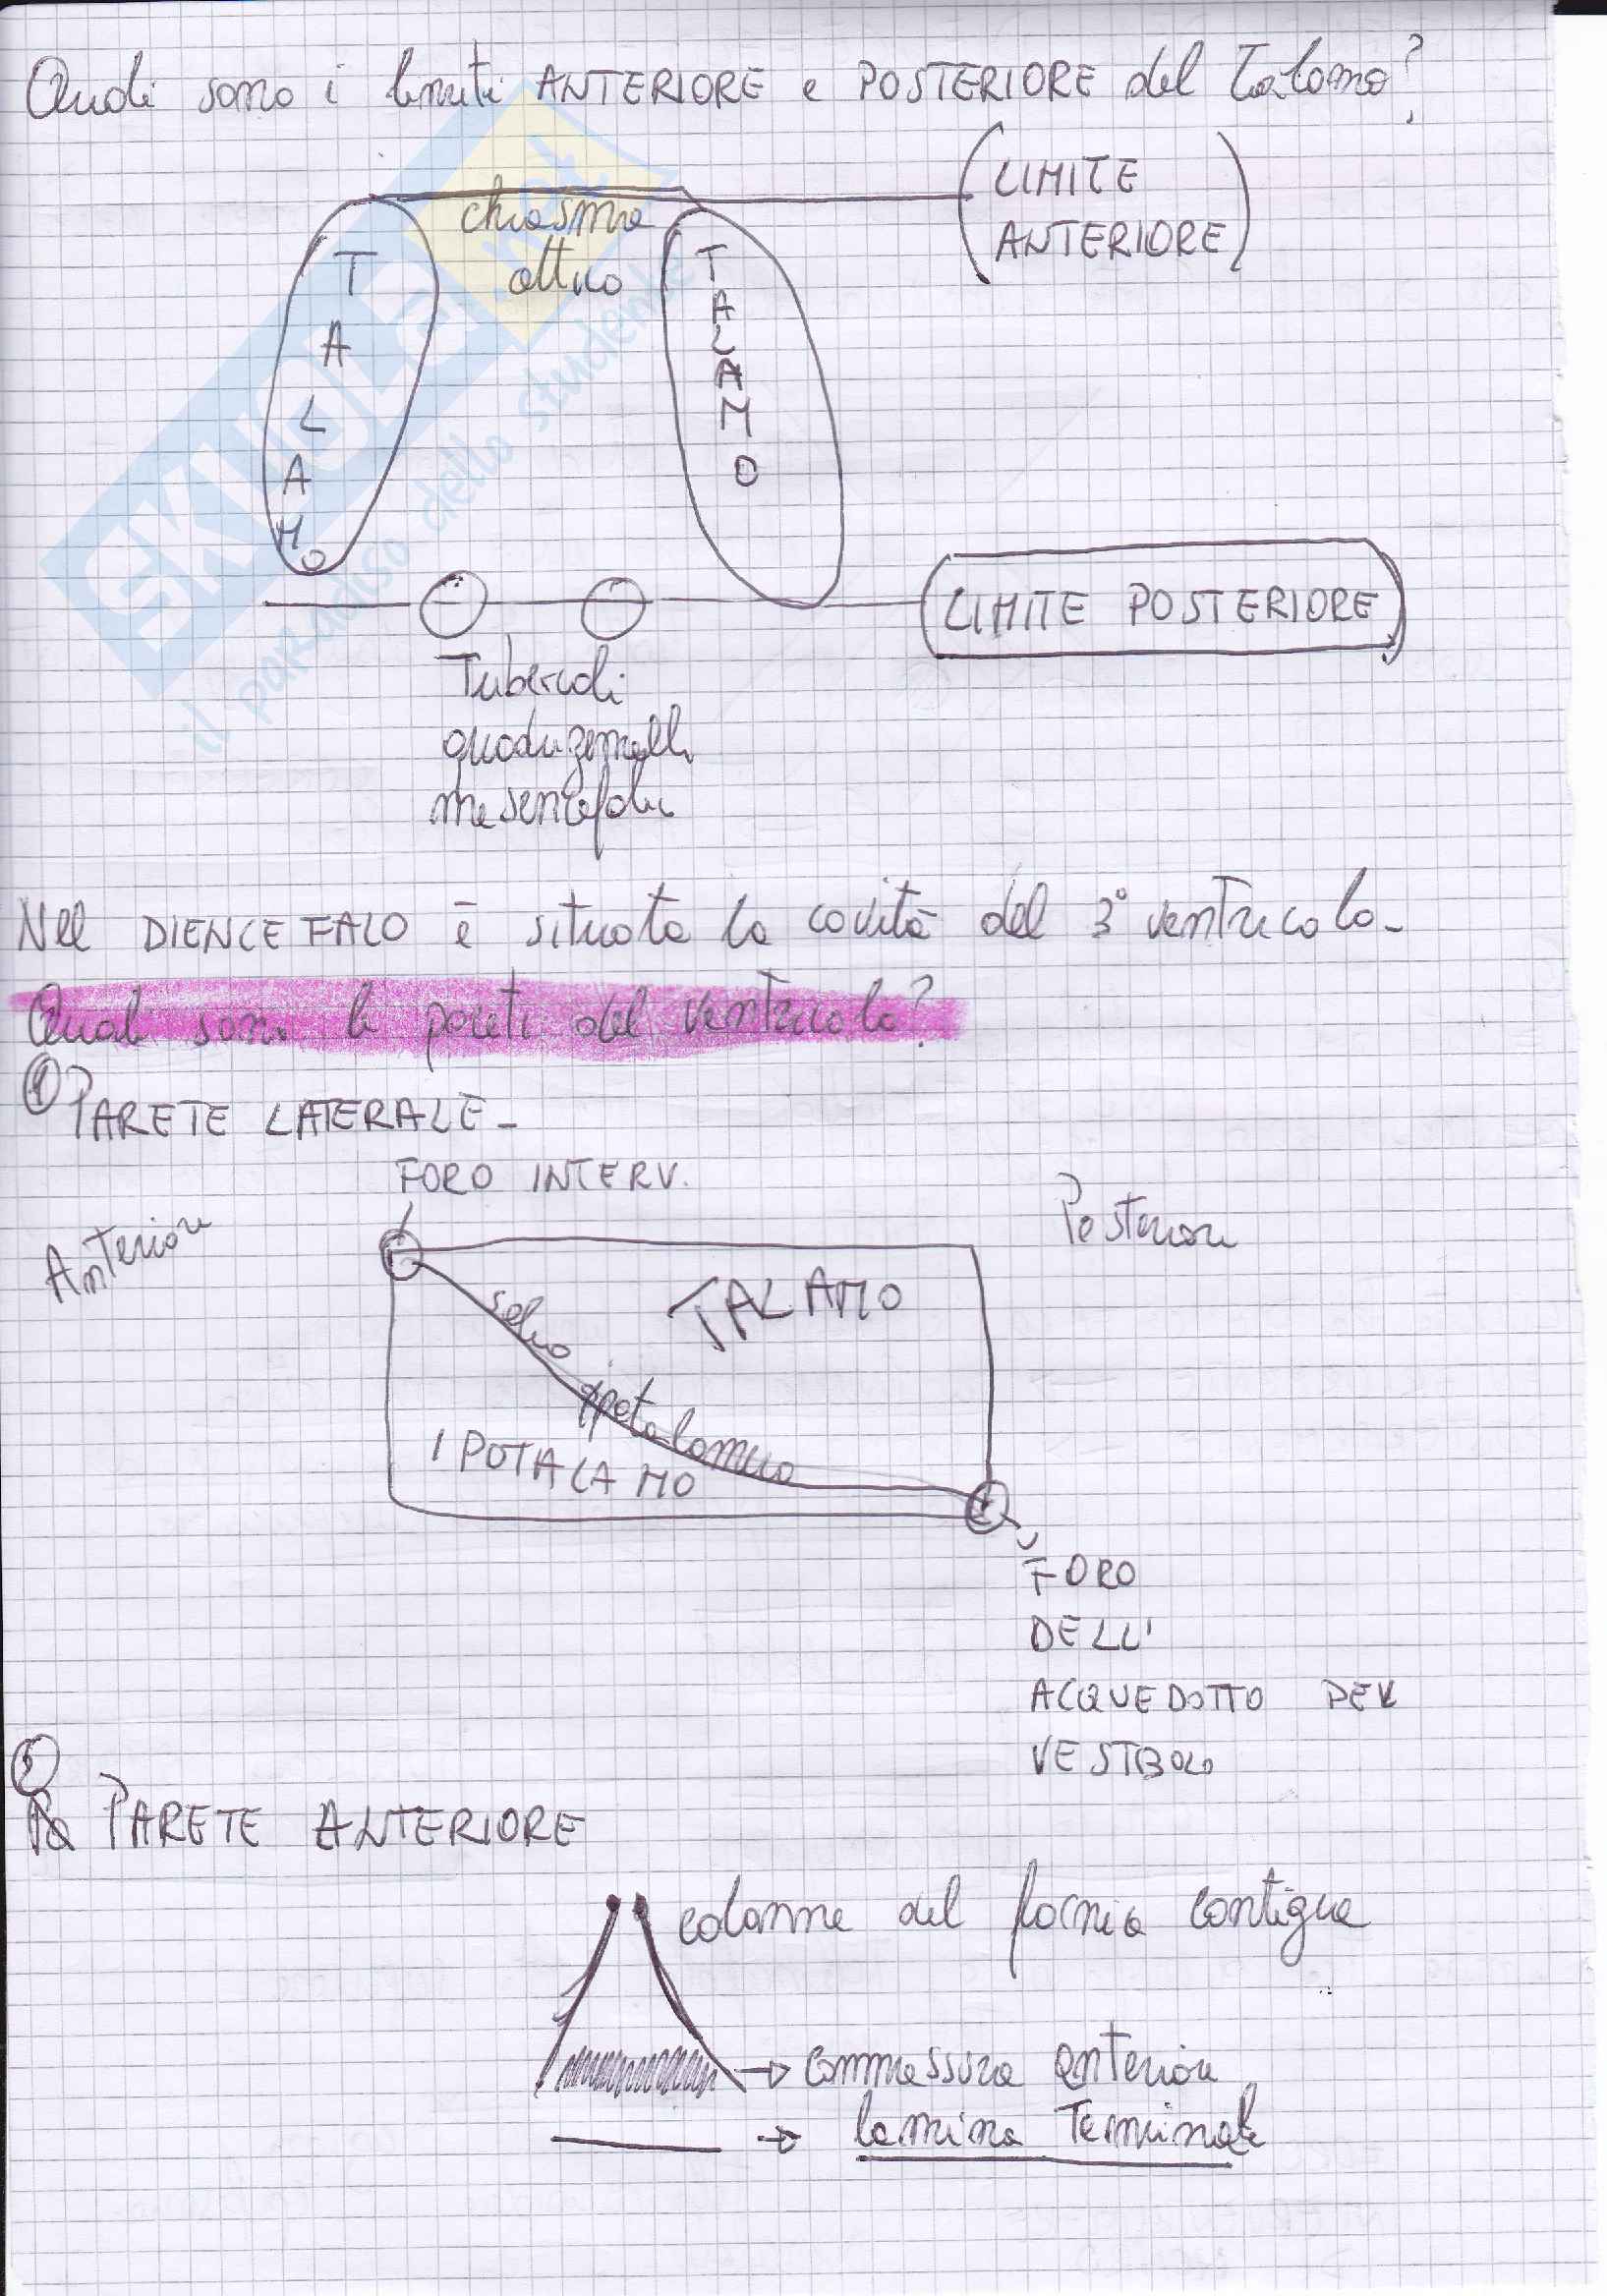 Quali sono i limiti ANTERIORE e POSTERIORE del Talamo?
LIMITE
ANTERIORE
chiasma
ottico
TALAMO
TALAMO
LIMITE POSTERIORE
Tubercoli
quadrigemelli
mesencefalici
SKUOLA.net
il paradiso dello studente
Nel DIENCEFALO è situata la cavità del 3° ventricolo-
Quali sono le pareti del ventricolo?
1 PARETE LATERALE-
FORO INTERV.
Anteriore
Posteriore
TALAMO
solco
ipotalamico
IPOTALAMO
FORO
DELL'
ACQUEDOTTO DEL
VESTIBOLO
PARETE ANTERIORE
colonne del fornice contigue
→ commessura anteriore
→ lamina Terminale